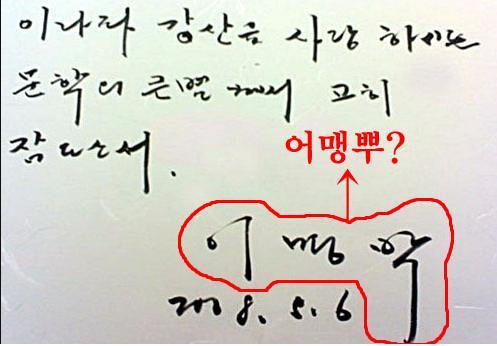 이나라 강산을 사랑 하시는
문학의 큰별 께서 고히
잠드소서.
어맹뿌?
이 명 박
2008. 5. 6